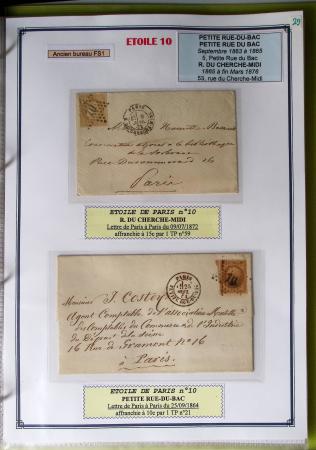 29
ETOILE 10
Ancien bureau FS1
PETITE RUE-DU-BAC
PETITE RUE DU BAC
Septembre 1863 à 1865
5, Petite Rue du Bac
R. DU CHERCHE-MIDI
1865 à fin Mars 1876
53, rue du Cherche-Midi
PARIS
à la bibliothèque
de la Sorbonne
Rue 16
Paris
ETOILE DE PARIS n°10
R. DU CHERCHE-MIDI
Lettre de Paris à Paris du 09/07/1872
affranchie à 15c par 1 TP n°59
PARIS
10
Monsieur J. Costey
Agent Comptable de l'association Mutuelle
des Comptables du Commerce & de l'Industrie
du Départ. de la Seine
16 Rue de Gramont N° 16
à Paris.
ETOILE DE PARIS n°10
PETITE RUE-DU-BAC
Lettre de Paris à Paris du 25/09/1864
affranchie à 10c par 1 TP n°21